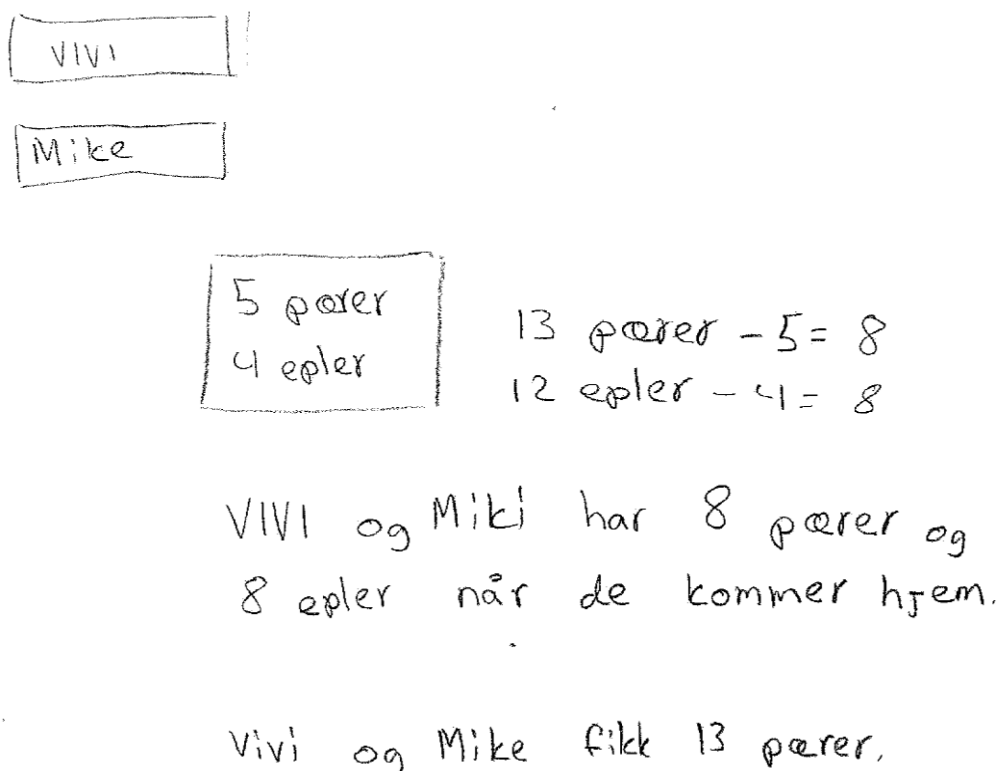 VIVI
Mike
5 pærer
4 epler
13 pærer - 5 = 8
12 epler - 4 = 8
VIVI og Miki har 8 pærer og
8 epler når de kommer hjem.
Vivi og Mike fikk 13 pærer.